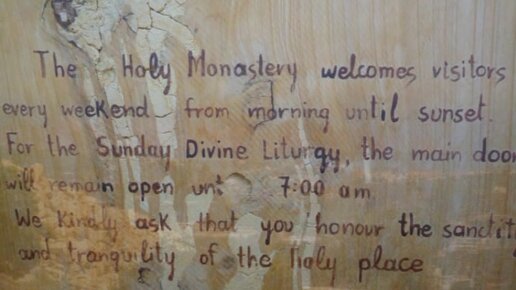 The Holy Monastery welcomes visitors
every weekend from morning until sunset.
For the Sunday Divine Liturgy, the main door
will remain open unt 7:00 am
We kindly ask that you honour the sanctity
and tranquility of the holy place